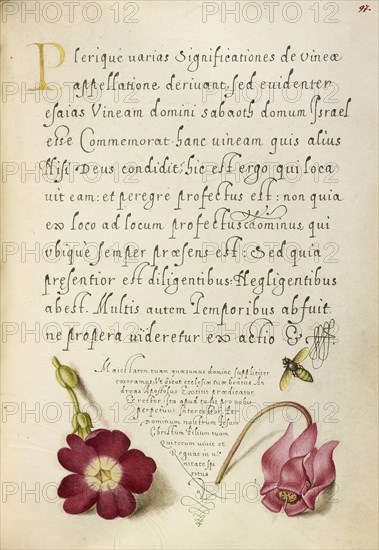 97.
Plerique varias Significationes de vineæ
appellatione derivant, sed evidenter
esaias Vineam domini sabaoth domum Israel
esse Commemorat. hanc vineam quis alius
Nisi Deus condidit: hic est ergo qui loca
vit eam: et peregre profectus est: non quia
ex loco ad locum profectus dominus, qui
ubique semper præsens est: Sed quia
præsentior est diligentibus. Negligentibus
abest. Multis autem Temporibus abfuit
ne propera videretur exactio &
Maiestatem tuam quæsumus domine suppliciter
exoramus. Ut sicut ecclesiæ tuæ beatus An
dreas Apostolus Extitit prædicator,
Et rector, ita apud te sit pro nobis
perpetuus intercessor. Per
dominum nostrum Iesum
Christum filium tuum
Qui tecum vivit et
Regnat in u
nitate spi
ritus
PHOTO12